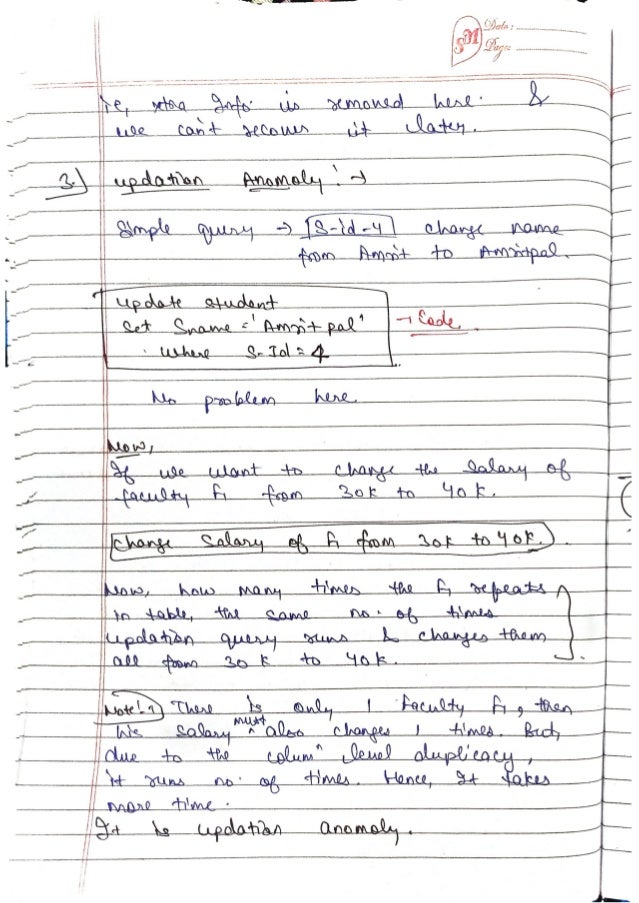 Date:
SM
Page:
ie, xtra Info. is removed here. &
we can't recover it later.
3.) updation Anomoly! →
Simple query → S-id-4 change name
from Amrit to Amritpal.
Update student
Set Sname = 'Amrit pal'
where S-Id = 4
→ Code
No problem here.
Now,
If we want to change the salary of
faculty F1 from 30k to 40k.
Change Salary of F1 from 30k to 40k.
Now, how many times the F1 repeats
in table, the same no. of times
updation query runs & changes them
all from 30k to 40k.
Note! → There is only 1 faculty F1, then
his salary must also changes 1 times. But,
due to the columⁿ level duplicacy,
it runs no. of times. Hence, It takes
more time.
It is updation anomoly.